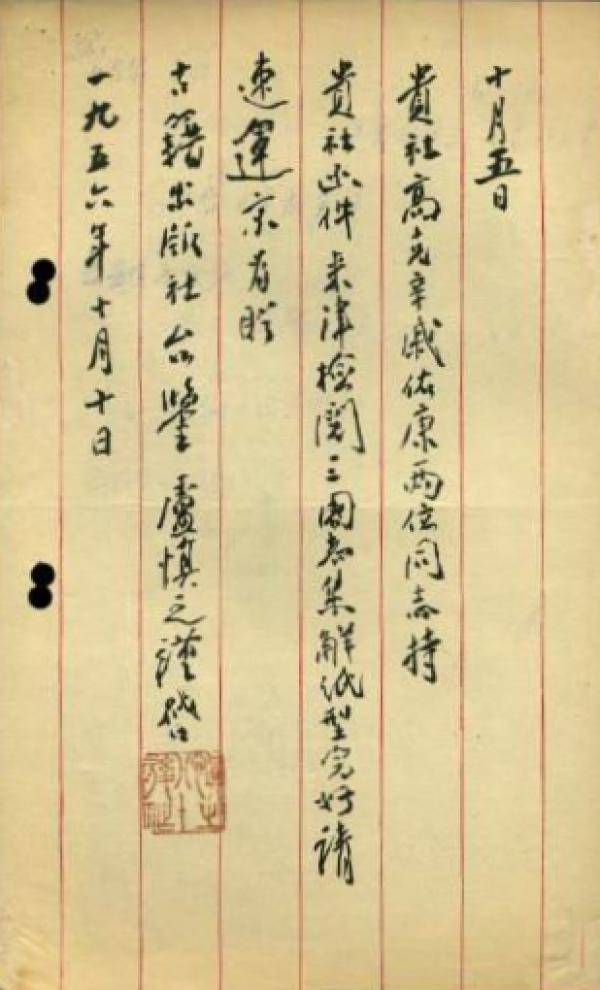 十月五日
貴社高克辛戚佑康兩位同志持
貴社函件来津檢閱三國志集解紙型完好請
速運京爲盼
古籍出版社台鑒 盧慎之謹啓
一九五六年十月十日